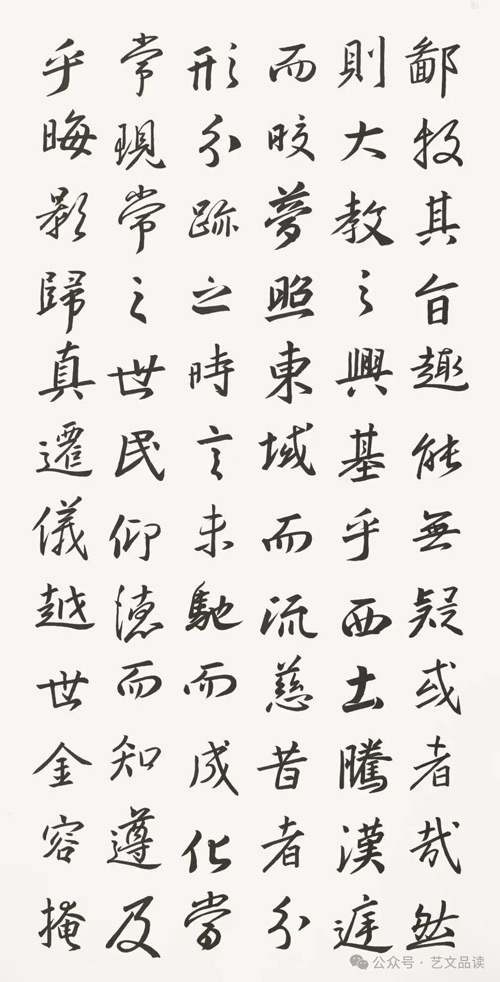 鄙投其旨趣能無疑或者哉然
則大教之興基乎西土騰漢庭
而皎夢照東域而流慈昔者分
形分跡之時言未馳而成化當
常現常之世民仰德而知遵及
乎晦影歸真遷儀越世金容掩
公众号·艺文品读